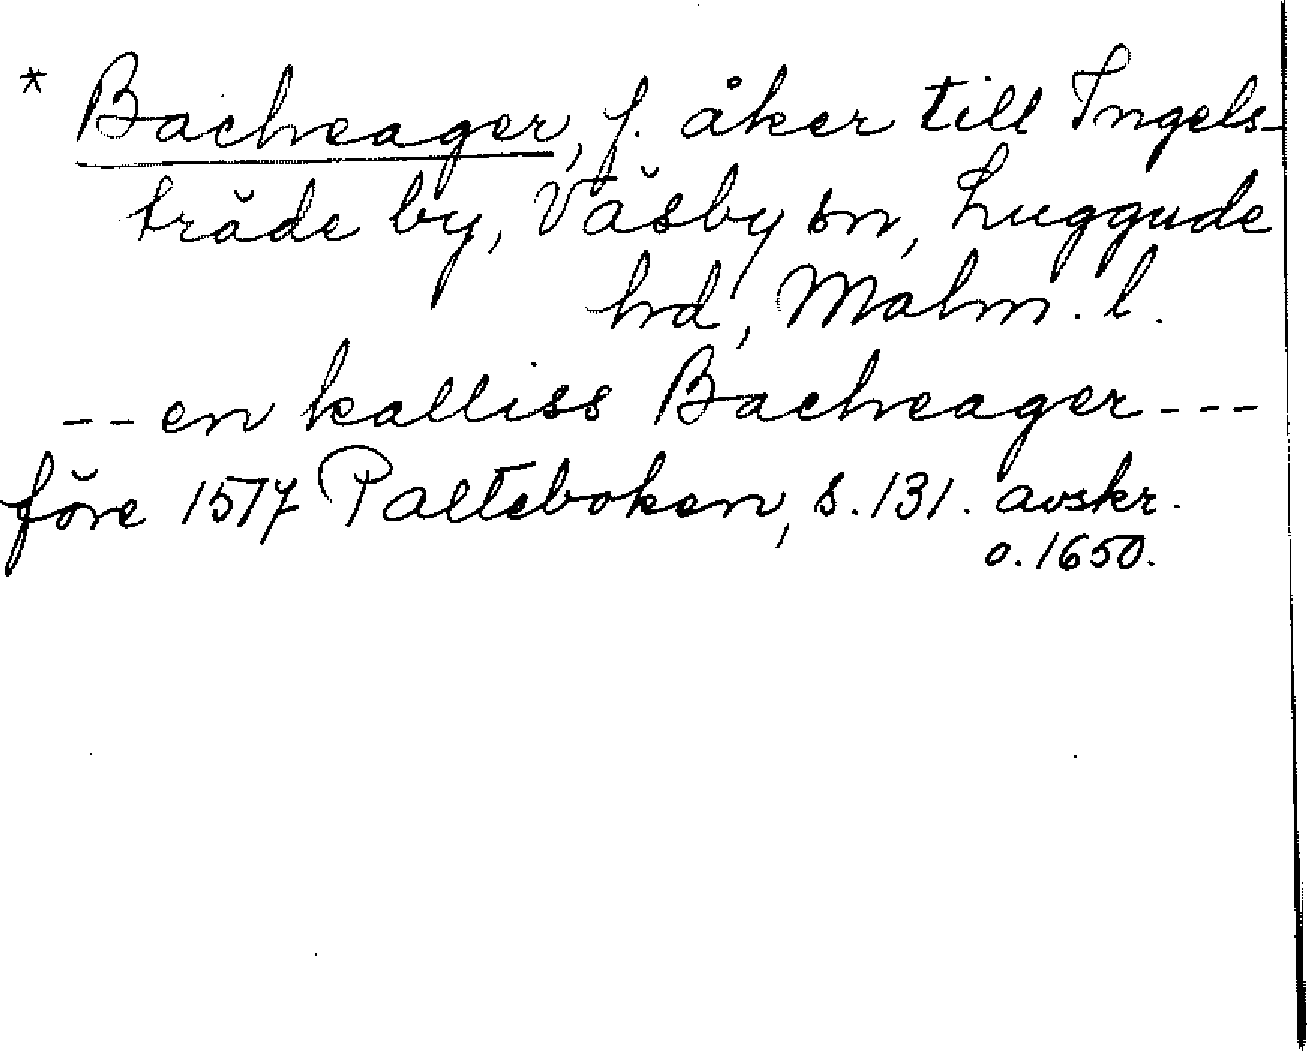 * Bacheager, f. åker till Ingels-
träde by, Väsby sn, Luggude
hd, Malm. l.
-- en kalliss Bacheager ---
före 1517 Palteboken, s. 131. avskr.
o. 1650.